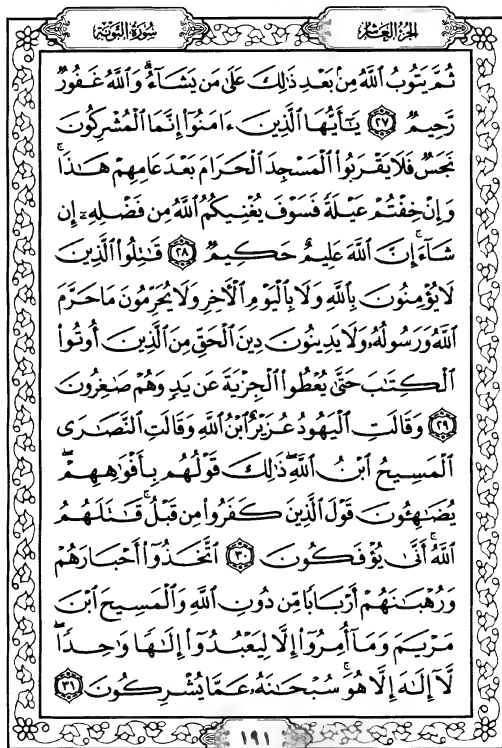 سُورَةُ التَّوْبَةِ
الجُزْءُ العَاشِرُ
ثُمَّ يَتُوبُ اللَّهُ مِنۢ بَعْدِ ذَٰلِكَ عَلَىٰ مَن يَشَآءُ ۗ وَاللَّهُ غَفُورٌ
رَّحِيمٌ ٢٧ يَٰٓأَيُّهَا الَّذِينَ ءَامَنُوٓا۟ إِنَّمَا الْمُشْرِكُونَ
نَجَسٌ فَلَا يَقْرَبُوا۟ الْمَسْجِدَ الْحَرَامَ بَعْدَ عَامِهِمْ هَٰذَا ۚ
وَإِنْ خِفْتُمْ عَيْلَةً فَسَوْفَ يُغْنِيكُمُ اللَّهُ مِن فَضْلِهِۦٓ إِن
شَآءَ ۚ إِنَّ اللَّهَ عَلِيمٌ حَكِيمٌ ٢٨ قَٰتِلُوا۟ الَّذِينَ
لَا يُؤْمِنُونَ بِاللَّهِ وَلَا بِالْيَوْمِ الْءَاخِرِ وَلَا يُحَرِّمُونَ مَا حَرَّمَ
اللَّهُ وَرَسُولُهُۥ وَلَا يَدِينُونَ دِينَ الْحَقِّ مِنَ الَّذِينَ أُوتُوا۟
الْكِتَٰبَ حَتَّىٰ يُعْطُوا۟ الْجِزْيَةَ عَن يَدٍ وَهُمْ صَٰغِرُونَ
٢٩ وَقَالَتِ الْيَهُودُ عُزَيْرٌ ابْنُ اللَّهِ وَقَالَتِ النَّصَٰرَى
الْمَسِيحُ ابْنُ اللَّهِ ۖ ذَٰلِكَ قَوْلُهُم بِأَفْوَٰهِهِمْ ۖ
يُضَٰهِـُٔونَ قَوْلَ الَّذِينَ كَفَرُوا۟ مِن قَبْلُ ۚ قَٰتَلَهُمُ
اللَّهُ ۚ أَنَّىٰ يُؤْفَكُونَ ٣٠ اتَّخَذُوٓا۟ أَحْبَارَهُمْ
وَرُهْبَٰنَهُمْ أَرْبَابًا مِّن دُونِ اللَّهِ وَالْمَسِيحَ ابْنَ
مَرْيَمَ وَمَآ أُمِرُوٓا۟ إِلَّا لِيَعْبُدُوٓا۟ إِلَٰهًا وَٰحِدًا ۖ
لَّآ إِلَٰهَ إِلَّا هُوَ ۚ سُبْحَٰنَهُۥ عَمَّا يُشْرِكُونَ ٣١
١٩١